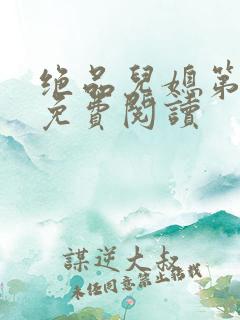 绝品兒媳第
免費閱讀
謀逆大叔
未經同意禁止轉載